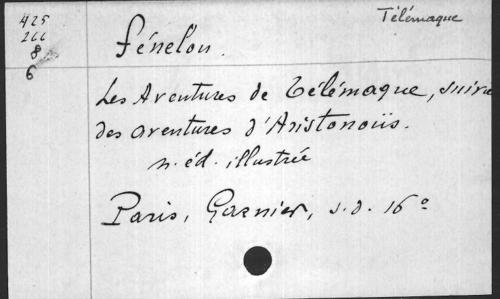 425
266
8
6
Télémaque
Fénelon.
Les Aventures de Télémaque, suivie
des aventures d'Aristonoüs.
n. éd. illustrée
Paris, Garnier, s.d. 16°